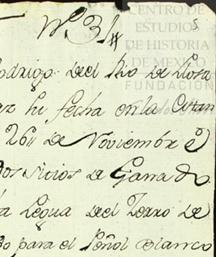 Nº 31
CENTRO DE
ESTUDIOS
DE HISTORIA
DE MEXICO
FUNDACIÓN
Rodrigo del Rio de Losa
fecha en la Estan
26 de Noviembre
dos sitios de Ganado
Legua del Zerro de
para el Peñol Blanco